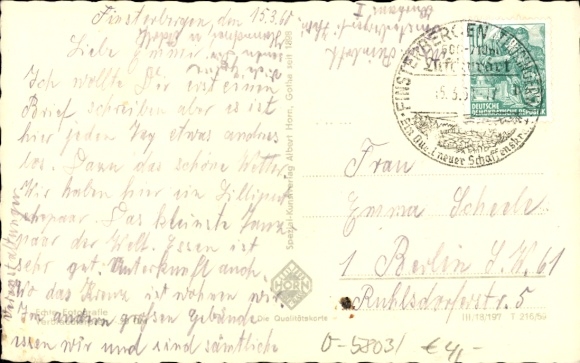 Finsterbergen den 15.3.60
Liebe Emmer.
Ich wollte Dir erst einen
Brief schreiben aber es ist
hier jeden Tag etwas andres
los. Dann das schöne Wetter.
Wir haben hier ein Lilliput
ehepaar. Das kleinste Tanz
paar der Welt. Essen ist
sehr gut. Unterkunft auch.
Wo das Kreuz ist wohnen wir.
Im andern großen Gebäude
essen wir und sind sämtliche
Veranstaltungen
Spezial-Kunstverlag Albert Horn, Gotha seit 1898
HORN
Die Qualitätskarte
FINSTERBERGEN
Luftkurort
15.3.
Ein Quell neuer Schaffenskr.
DEUTSCHE
DEMOKRATISCHE REPUBLIK
Frau
Emma Scheele
1 Berlin S.W. 61
Ruhlsdorferstr. 5
III/18/197 T 216/59
0-5803/ € 4,-